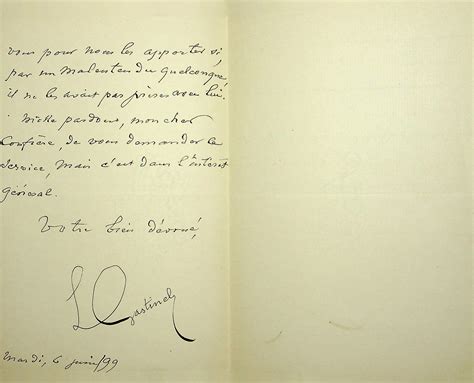 vous pour nous les apporter si,
par un malentendu quelconque,
il ne les avait pas prises avec lui.
Mille pardons, mon cher
Confrère, de vous demander ce
service, mais c'est dans l'intérêt
général.
Votre bien dévoué,
L Gastinel
Mardi, 6 juin/99